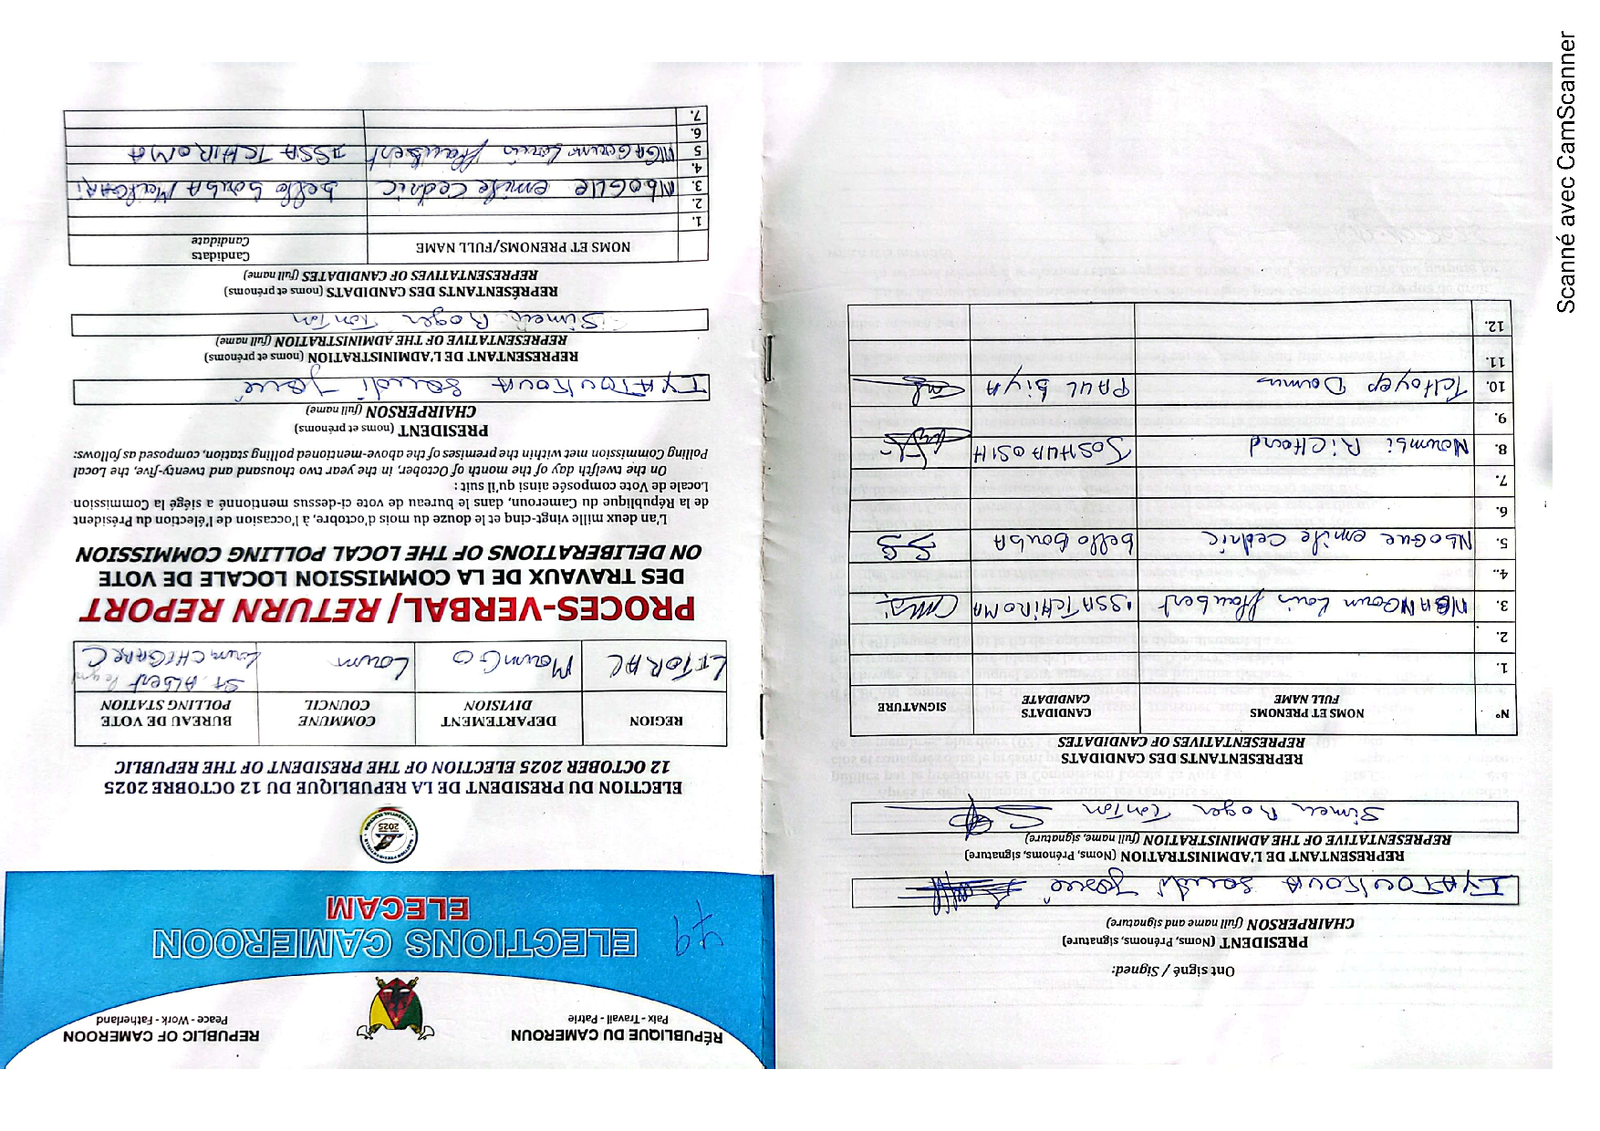 RÉPUBLIQUE DU CAMEROUN
Paix - Travail - Patrie
REPUBLIC OF CAMEROON
Peace - Work - Fatherland
ELECTIONS CAMEROON
ELECAM
79
ELECTION DU PRESIDENT DE LA REPUBLIQUE DU 12 OCTOBRE 2025
12 OCTOBER 2025 ELECTION OF THE PRESIDENT OF THE REPUBLIC
REGION
DEPARTEMENT
DIVISION
COMMUNE
COUNCIL
BUREAU DE VOTE
POLLING STATION
LITTORAL
MounGO
Loum
St. Albert
Loum CHEGARE C
PROCES-VERBAL/ RETURN REPORT
DES TRAVAUX DE LA COMMISSION LOCALE DE VOTE
ON DELIBERATIONS OF THE LOCAL POLLING COMMISSION
L'an deux mille vingt-cinq et le douze du mois d'octobre, à l'occasion de l'élection du Président
de la République du Cameroun, dans le bureau de vote ci-dessus mentionné a siégé la Commission
Locale de Vote composée ainsi qu'il suit :
On the twelfth day of the month of October, in the year two thousand and twenty-five, the Local
Polling Commission met within the premises of the above-mentioned polling station, composed as follows:
PRESIDENT (noms et prénoms)
CHAIRPERSON (full name)
IYATOUKOUA Saudi Josué
REPRESENTANT DE L'ADMINISTRATION (noms et prénoms)
REPRESENTATIVE OF THE ADMINISTRATION (full name)
Simeu Roger TonTon
REPRÉSENTANTS DES CANDIDATS (noms et prénoms)
REPRESENTATIVES OF CANDIDATES (full name)
NOMS ET PRENOMS/FULL NAME
Candidats
Candidate
1.
2.
3. NBOGUE emile Cedric bello bouba MaiGARi
4.
5 Louis Haubert ISSA TCHIROMA
6.
7.
Ont signé / Signed:
PRESIDENT (Noms, Prénoms, signature)
CHAIRPERSON (full name and signature)
IYATOUKOUA Saudi Josué
REPRESENTANT DE L'ADMINISTRATION (Noms, Prénoms, signature)
REPRESENTATIVE OF THE ADMINISTRATION (full name, signature)
Simeu Roger TonTon
REPRESENTANTS DES CANDIDATS
REPRESENTATIVES OF CANDIDATES
N°
NOMS ET PRENOMS
FULL NAME
CANDIDATS
CANDIDATE
SIGNATURE
1.
2.
3. Louis Haubert ISSA TCHIROMA
4..
5. Nbogue emile Cedric bello bouba
6.
7.
8. Noumbi RicHard JOSHUA OSIH
9.
10. TcHoyep Dounus PAUL BiYA
11.
12.
Scanné avec CamScanner